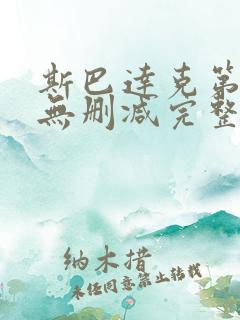 斯巴達克第
無删减完整
纳木措
未经同意禁止转载